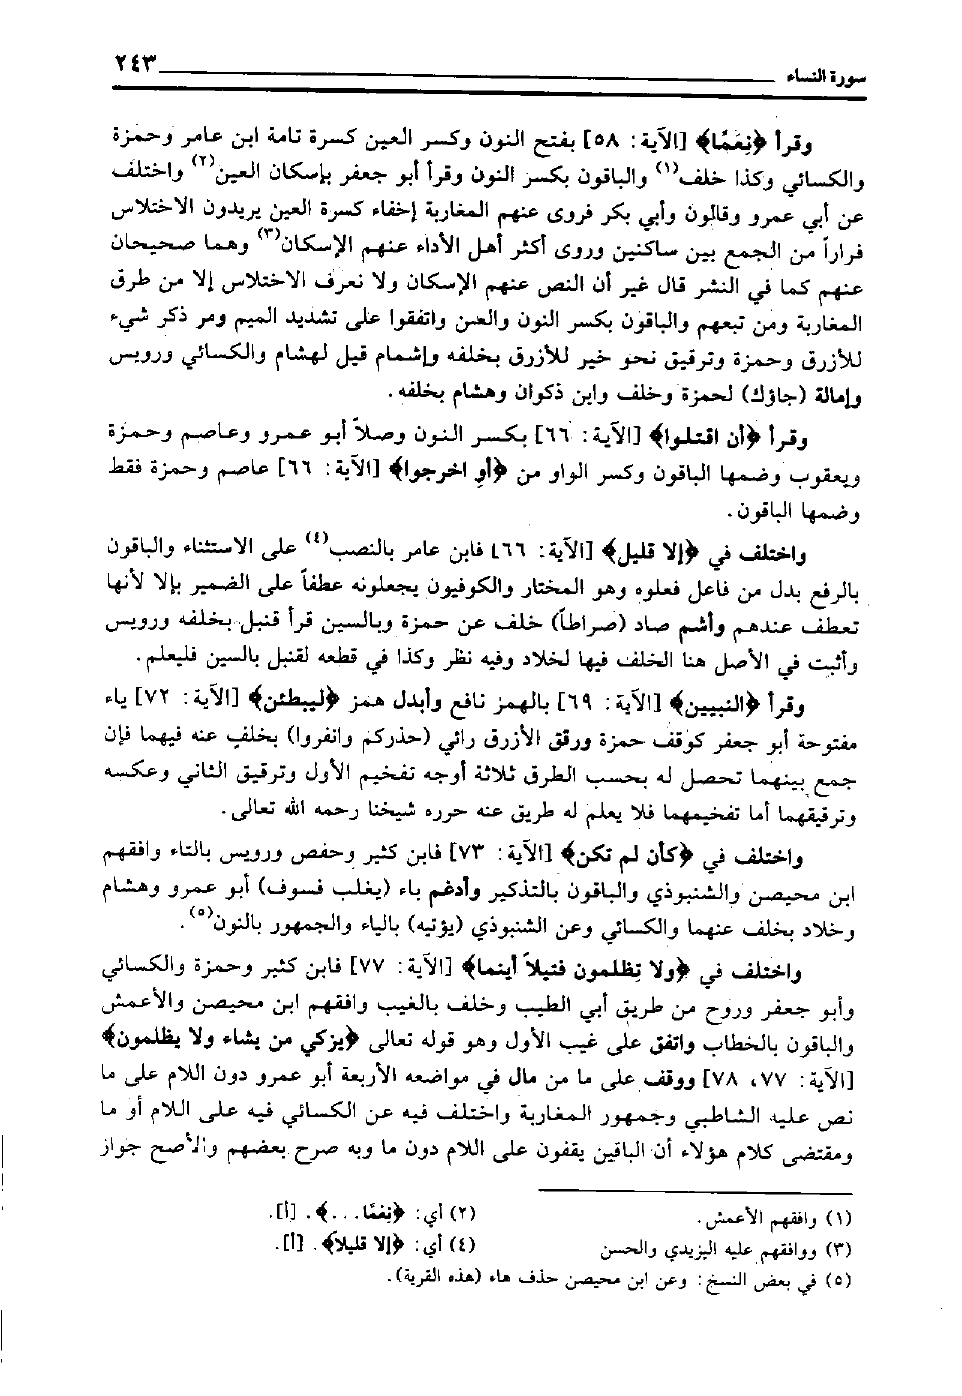 سورة النساء ٢٤٣
وقرأ ﴿نِعَمَّا﴾ [الآية: ٥٨] بفتح النون وكسر العين كسرة تامة ابن عامر وحمزة
والكسائي وكذا خلف(١) والباقون بكسر النون وقرأ أبو جعفر بإسكان العين(٢) واختلف
عن أبي عمرو وقالون وأبي بكر فروى عنهم المغاربة إخفاء كسرة العين يريدون الاختلاس
فراراً من الجمع بين ساكنين وروى أكثر أهل الأداء عنهم الإسكان(٣) وهما صحيحان
عنهم كما في النشر قال غير أن النص عنهم الإسكان ولا نعرف الاختلاس إلا من طرق
المغاربة ومن تبعهم والباقون بكسر النون والعين واتفقوا على تشديد الميم ومر ذكر شيء
للأزرق وحمزة وترقيق نحو خير للأزرق بخلفه وإشمام قيل لهشام والكسائي ورويس
وإمالة (جاؤك) لحمزة وخلف وابن ذكوان وهشام بخلفه.
وقرأ ﴿أن اقتلوا﴾ [الآية: ٦٦] بكسر النون وصلاً أبو عمرو وعاصم وحمزة
ويعقوب وضمها الباقون وكسر الواو من ﴿أوِ اخرجوا﴾ [الآية: ٦٦] عاصم وحمزة فقط
وضمها الباقون.
واختلف في ﴿إلا قليل﴾ [الآية: ٦٦] فابن عامر بالنصب(٤) على الاستثناء والباقون
بالرفع بدل من فاعل فعلوه وهو المختار والكوفيون يجعلونه عطفاً على الضمير بإلا لأنها
تعطف عندهم وأشم صاد (صراطاً) خلف عن حمزة وبالسين قرأ قنبل بخلفه ورويس
وأثبت في الأصل هنا الخلف فيها لخلاد وفيه نظر وكذا في قطعه لقنبل بالسين فليعلم.
وقرأ ﴿النبيين﴾ [الآية: ٦٩] بالهمز نافع وأبدل همز ﴿ليبطئن﴾ [الآية: ٧٢] ياء
مفتوحة أبو جعفر كوقف حمزة ورقق الأزرق رائي (حذركم وانفروا) بخلف عنه فيهما فإن
جمع بينهما تحصل له بحسب الطرق ثلاثة أوجه تفخيم الأول وترقيق الثاني وعكسه
وترقيقهما أما تفخيمهما فلا يعلم له طريق عنه حرره شيخنا رحمه الله تعالى.
واختلف في ﴿كأن لم تكن﴾ [الآية: ٧٣] فابن كثير وحفص ورويس بالتاء وافقهم
ابن محيصن والشنبوذي والباقون بالتذكير وأدغم باء (يغلب فسوف) أبو عمرو وهشام
وخلاد بخلف عنهما والكسائي وعن الشنبوذي (يؤتيه) بالياء والجمهور بالنون(٥).
واختلف في ﴿ولا تظلمون فتيلاً أينما﴾ [الآية: ٧٧] فابن كثير وحمزة والكسائي
وأبو جعفر وروح من طريق أبي الطيب وخلف بالغيب وافقهم ابن محيصن والأعمش
والباقون بالخطاب واتفق على غيب الأول وهو قوله تعالى ﴿يزكي من يشاء ولا يظلمون﴾
[الآية: ٧٧، ٧٨] ووقف على ما من مال في مواضعه الأربعة أبو عمرو دون اللام على ما
نص عليه الشاطبي وجمهور المغاربة واختلف فيه عن الكسائي فيه على اللام أو ما
ومقتضى كلام هؤلاء أن الباقين يقفون على اللام دون ما وبه صرح بعضهم والأصح جواز
(١) وافقهم الأعمش. (٢) أي: ﴿نِعْمَّا...﴾. [أ].
(٣) ووافقهم عليه اليزيدي والحسن (٤) أي: ﴿إلا قليلاً﴾. [أ].
(٥) في بعض النسخ: وعن ابن محيصن حذف هاء (هذه القرية).